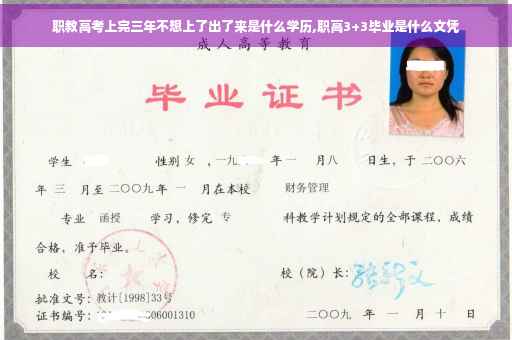 职教高考上完三年不想上了出了来是什么学历,职高3+3毕业是什么文凭
成人高等教育
毕业证书
学生 性别 女 ,一九 年 一 月八 日生，于二〇〇六
年 三 月至二〇〇九年 一 月在本校 财务管理
专业 函授 学习，修完 专 科教学计划规定的全部课程，成绩
合格，准予毕业。
校 名： 校（院）长：
批准文号：教计[1998]33号
证书编号： 06001310 二〇〇九 年 一 月 十 日